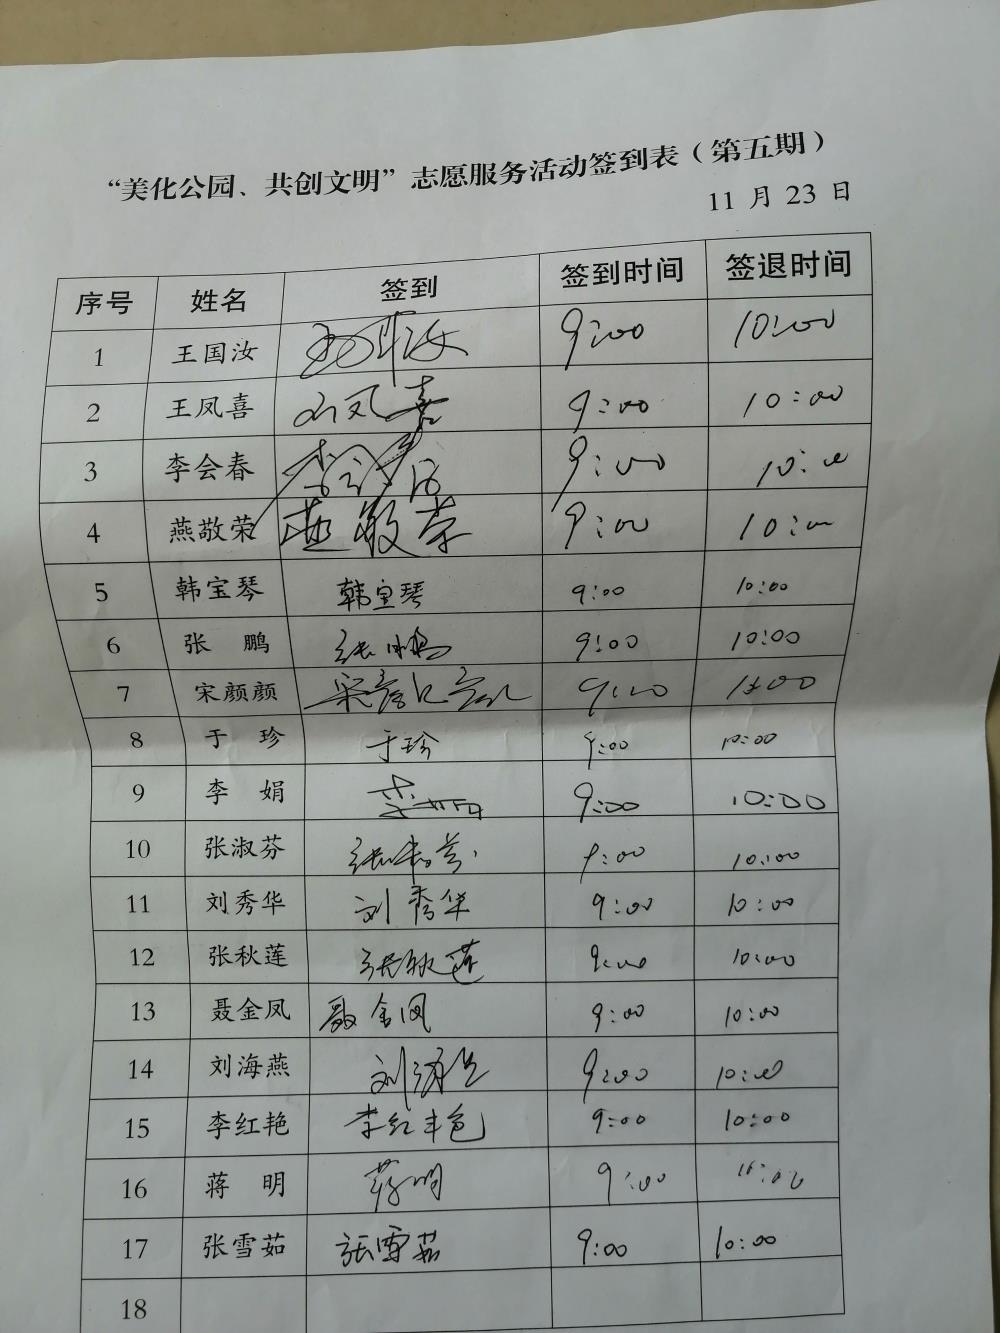 “美化公园、共创文明”志愿服务活动签到表（第五期）
11 月 23 日
序号 姓名 签到 签到时间 签退时间
1 王国汝 王国汝 9:00 10:00
2 王凤喜 王凤喜 9:00 10:00
3 李会春 李会春 9:00 10:00
4 燕敬荣 燕敬荣 9:00 10:00
5 韩宝琴 韩宝琴 9:00 10:00
6 张 鹏 张鹏 9:00 10:00
7 宋颜颜 宋颜颜 9:00 10:00
8 于 珍 于珍 9:00 10:00
9 李 娟 李娟 9:00 10:00
10 张淑芬 张淑芬 9:00 10:00
11 刘秀华 刘秀华 9:00 10:00
12 张秋莲 张秋莲 9:00 10:00
13 聂金凤 聂金凤 9:00 10:00
14 刘海燕 刘海燕 9:00 10:00
15 李红艳 李红艳 9:00 10:00
16 蒋 明 蒋明 9:00 10:00
17 张雪茹 張雪茹 9:00 10:00
18